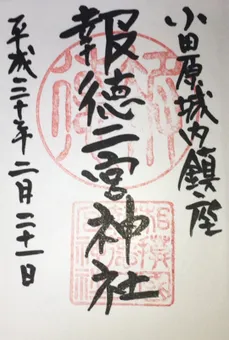 小田原城内鎮座
報徳二宮神社
平成二十年二月二十一日